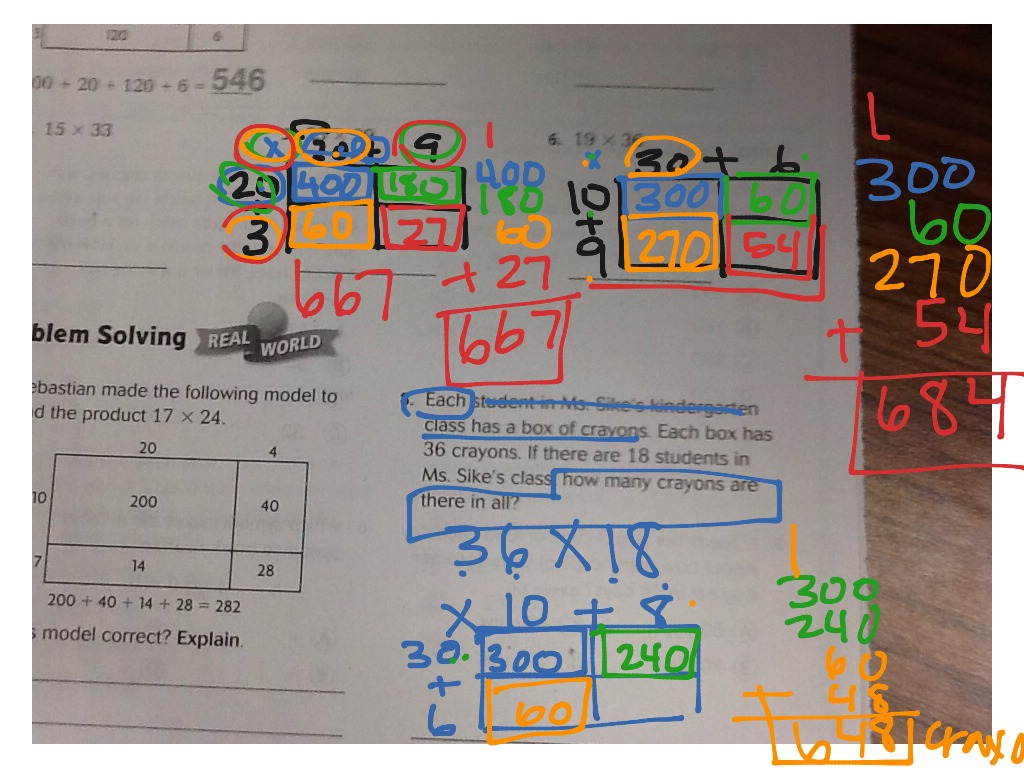 120 6
00 + 20 + 120 + 6 = 546
15 × 33
x 20 + 9
20 400 180
3 60 27
667
1
400
180
60
+ 27
667
6. 19 × 36
x 30 + 6
10 300 60
+
9 270 54
1
300
60
270
+ 54
684
blem Solving REAL WORLD
ebastian made the following model to
d the product 17 × 24.
20 4
10 200 40
7 14 28
200 + 40 + 14 + 28 = 282
s model correct? Explain.
Each student in Ms. Sike's kindergarten
class has a box of crayons. Each box has
36 crayons. If there are 18 students in
Ms. Sike's class, how many crayons are
there in all?
36 X 18
x 10 + 8
30 300 240
+
6 60
1
300
240
60
+ 48
648